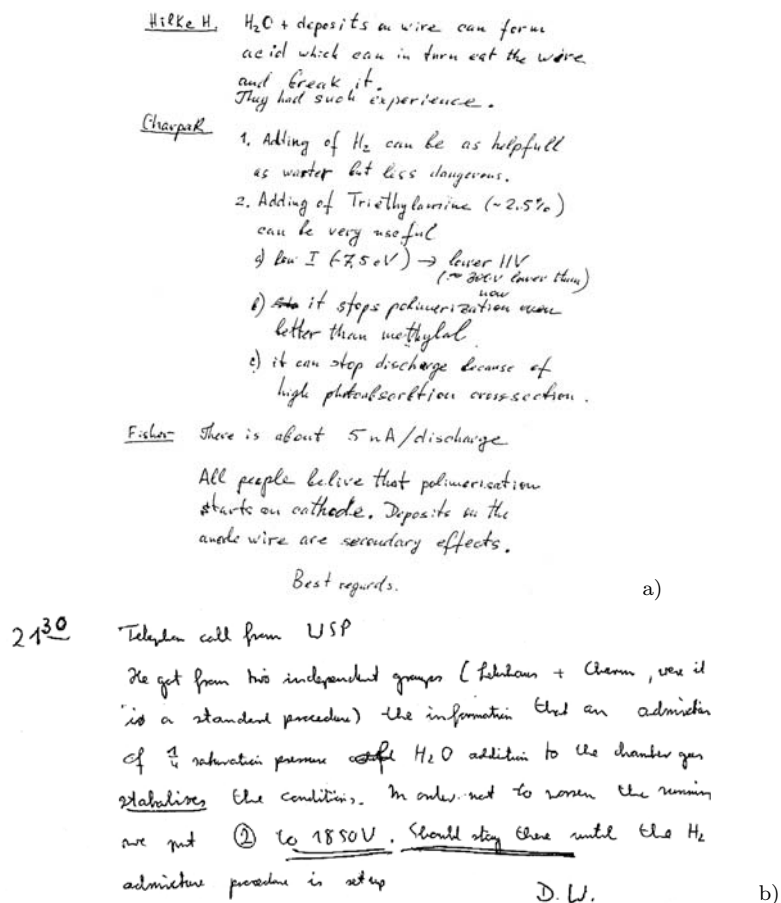 Hilke H. H₂O + deposits on wire can form
acid which can in turn eat the wire
and break it.
They had such experience.
Charpak
1. Adding of H₂ can be as helpfull
as warter but less dangerous.
2. Adding of Triethylamine (~2.5%)
can be very useful
a) low I (~7,5 eV) → lower HV
(~ 300V lower than
now)
b) it stops polimerization even
better than methylal
c) it can stop discharge because of
high photoabsorbtion cross-section.
Fisher There is about 5 nA/discharge
All people belive that polimerisation
starts on cathode. Deposits on the
anode wire are secondary effects.
Best regards.
a)
21³⁰ Telephon call from USP
He got from two independent groups ( + Charm, were it
is a standard procedure) the information that an admixture
of 1/4 saturation pressure of H₂O addition to the chamber gas
stabalises the conditions. In order not to worsen the running
we put ② to 1850V. Should stay there until the H₂
admixture procedure is set up
D.W.
b)